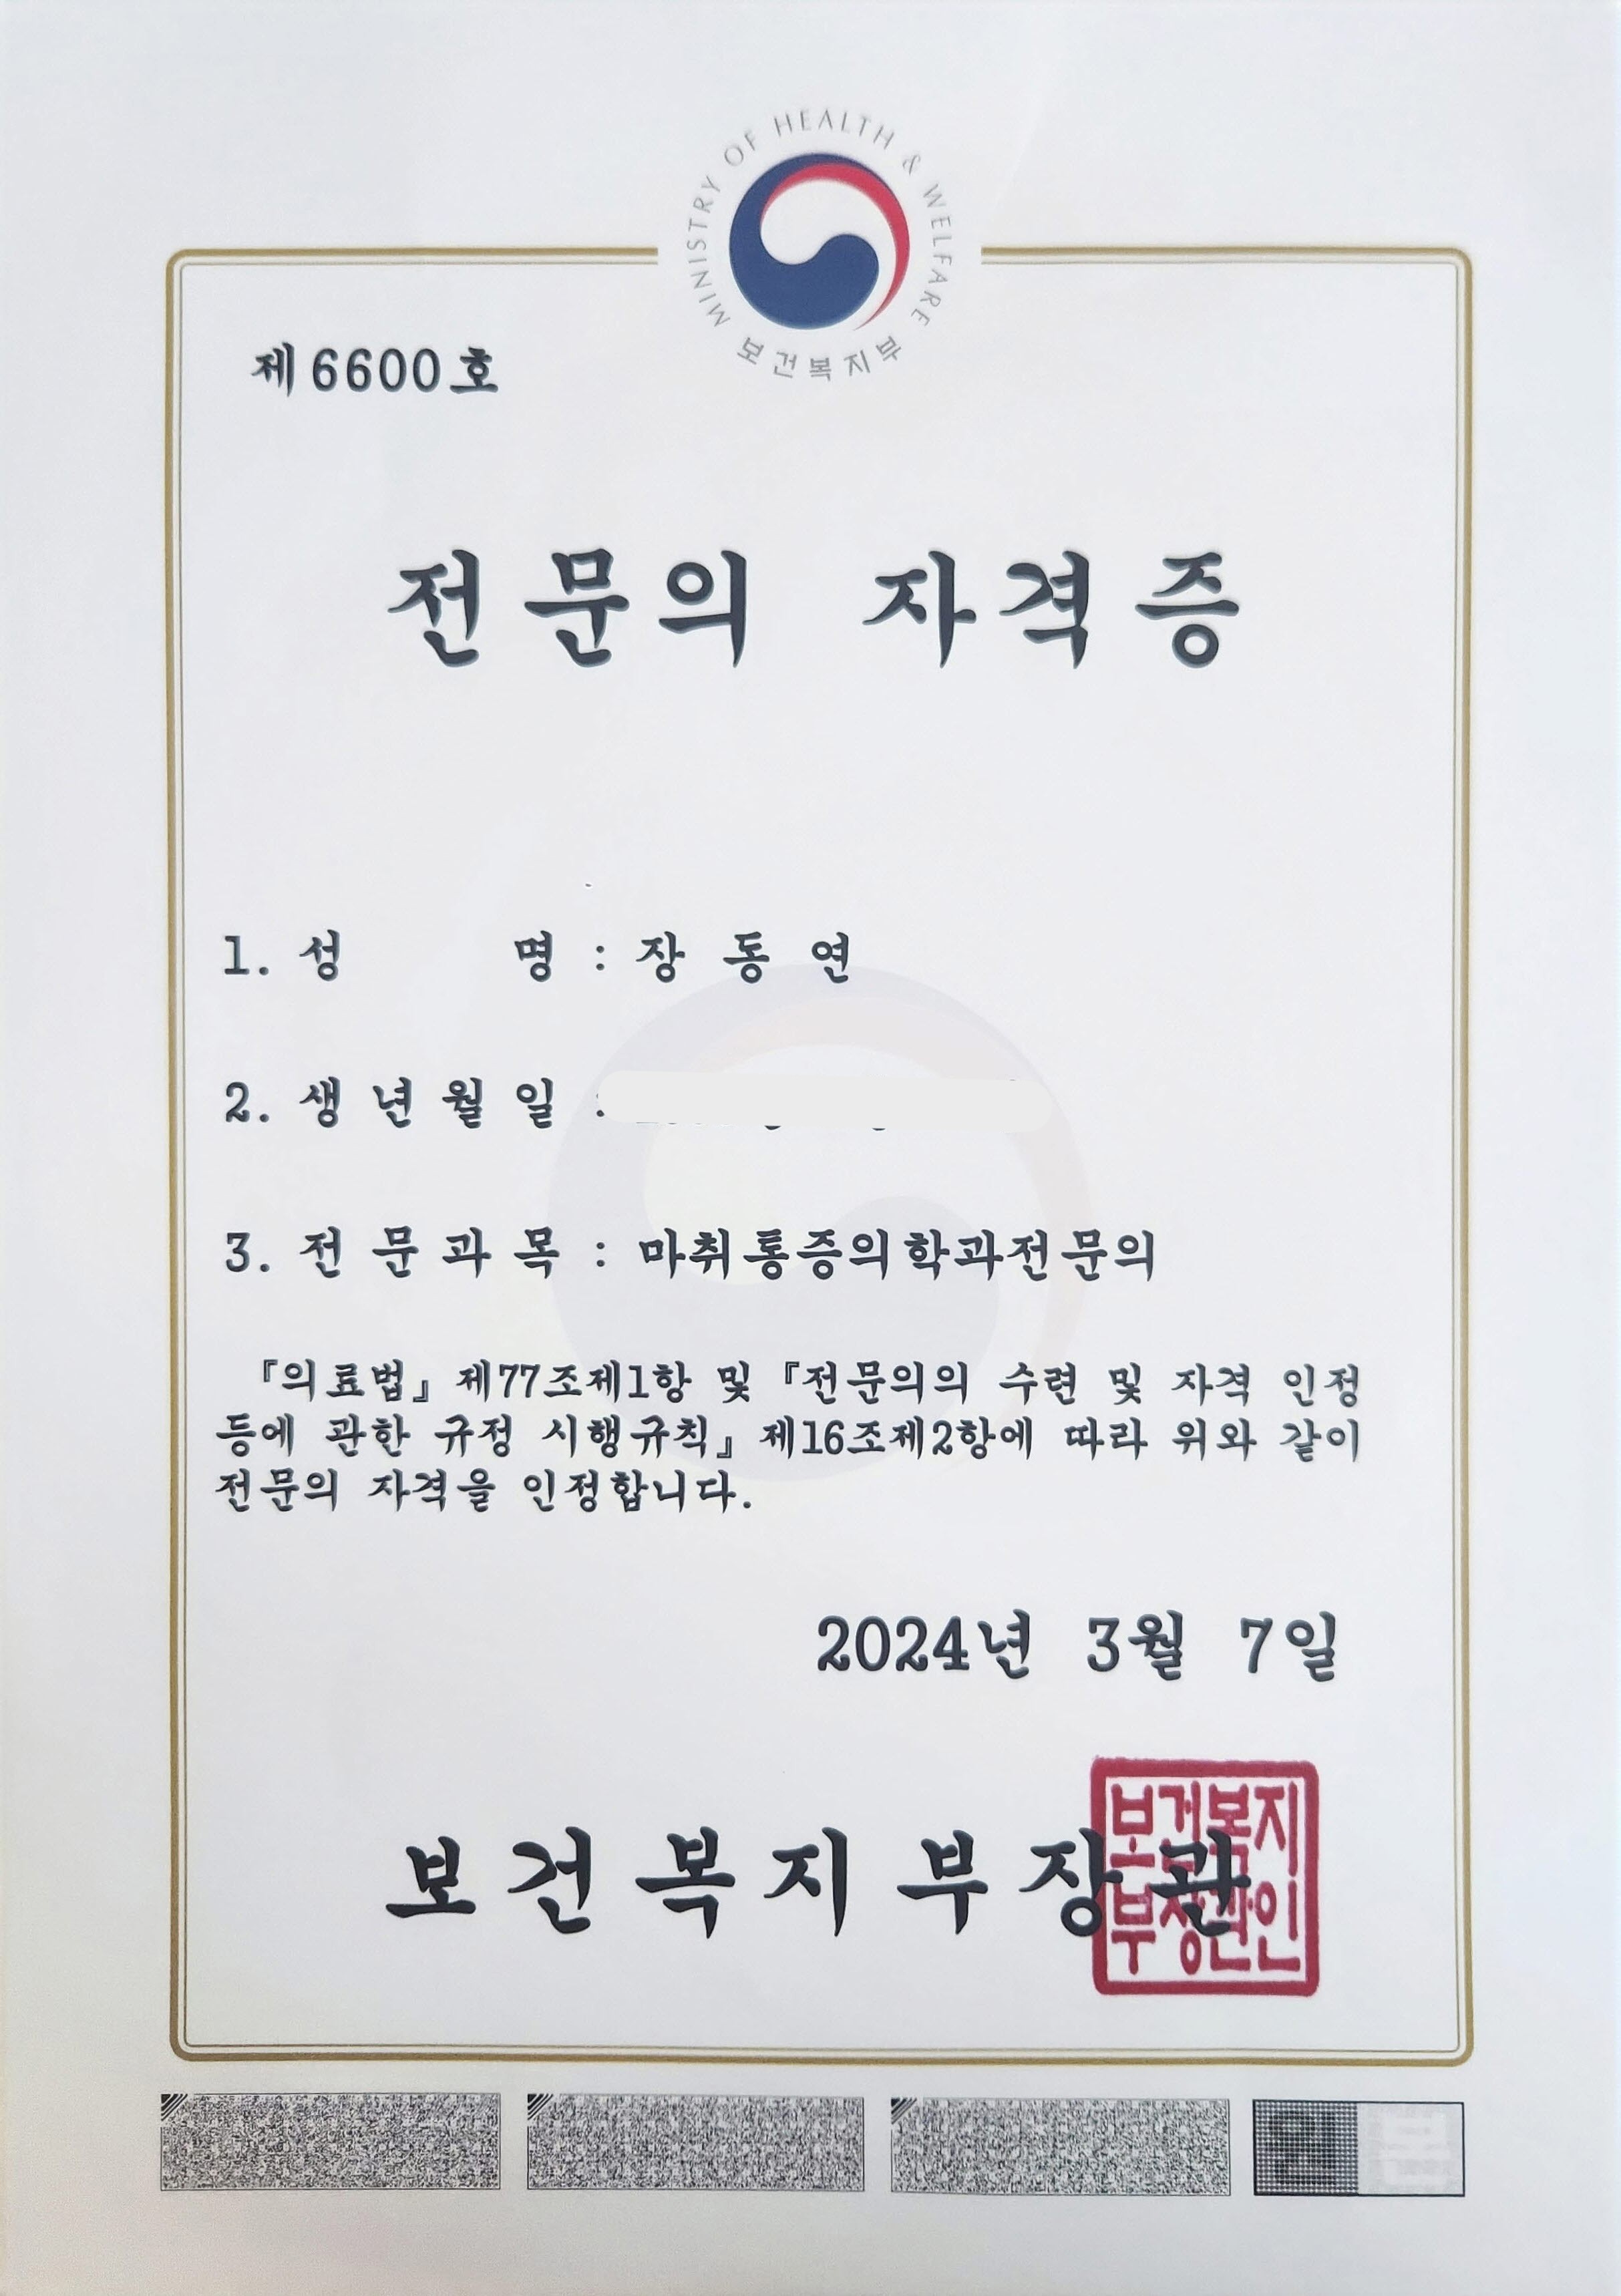 MINISTRY OF HEALTH & WELFARE
보건복지부
제6600호
전문의 자격증
1. 성 명 : 장 동 연
2. 생 년 월 일 :
3. 전 문 과 목 : 마취통증의학과전문의
『의료법』 제77조제1항 및 『전문의의 수련 및 자격 인정
등에 관한 규정 시행규칙』 제16조제2항에 따라 위와 같이
전문의 자격을 인정합니다.
2024년 3월 7일
보건복지부장관
보건복지
부장관인
원본